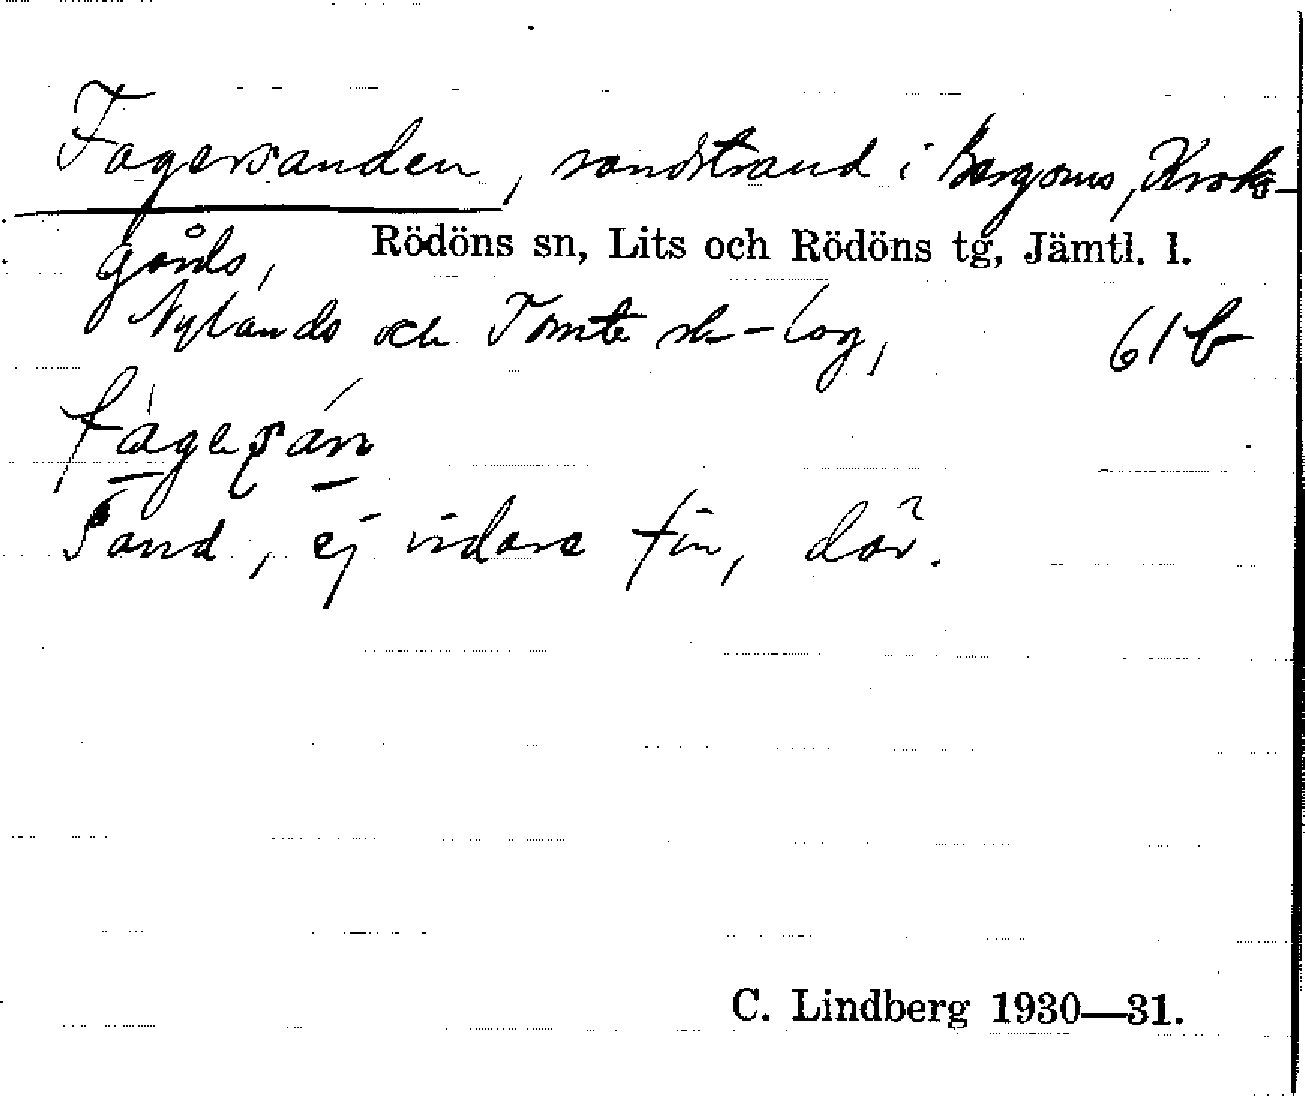 Fagersanden, sandstrand i Bergoms, Kroks-
gårds, Rödöns sn, Lits och Rödöns tg, Jämtl. l.
Nylands och Tomte sk-lag, 61b
Sand, ej vidare fin, där.
C. Lindberg 1930—31.